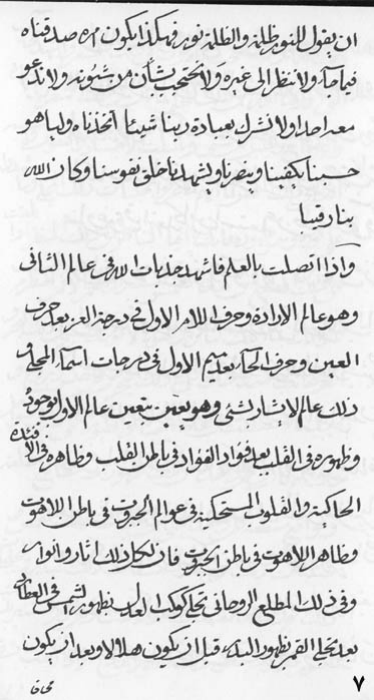 ان يقول للنور ظلمة وللظلمة نور فهكذا يكون من صدقناه
فيما جاء ولا ننظر الى غيره ولا نحتجب بشأن من شئونه ولا ندعو
معه احدا ولا نشرك بعبادة ربنا شيئا اتخذناه وليا هو
حسبنا يكفينا وينصرنا ويشهدنا خلق نفوسنا وكان الله
بنا رقيبا
واذا اتصلت بالعلم فاشهد جذبات الله في عالم الثاني
وهو عالم الارادة وحرف اللام الاول في درجة العز بعد حرف
العين وحرف الحاء بعد ميم الاول في درجات اسماء
ذلك عالم لا يشار بشئ وهو يعين بتعين عالم الاول
وظهوره في القلب بعد فؤاد الفؤاد في باطن القلب وظاهره في الافئدة
الحاكية والقلوب المستحكية في عوالم الجبروت في باطن اللاهوت
وظاهر اللاهوت في باطن الجبروت فان لكل ذلك اثار وانوار
وفي ذلك المطلع الروحاني تجلى كوكب العدل بظهور الشمس في العطارد
بعد تجلى القمر بظهور البدء قبل ان يكون هذا والا وبعد ان يكون
٧